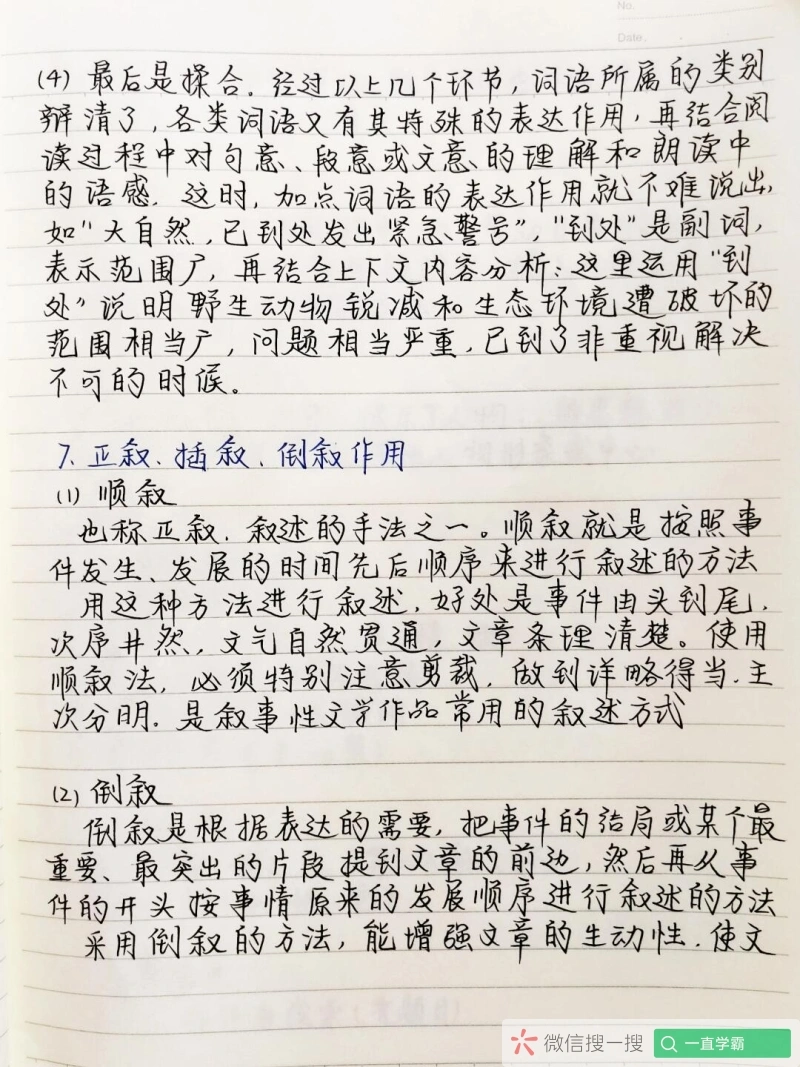 No.
Date.
(4) 最后是揉合. 经过以上几个环节, 词语所属的类别
辩清了, 各类词语又有其特殊的表达作用, 再结合阅
读过程中对句意、段意或文意的理解和朗读中
的语感. 这时, 加点词语的表达作用就不难说出,
如“大自然, 已到处发出紧急警号”, “到处”是副词,
表示范围广, 再结合上下文内容分析: 这里运用“到
处”说明野生动物锐减和生态环境遭破坏的
范围相当广, 问题相当严重, 已到了非重视解决
不可的时候。
7. 正叙、插叙、倒叙作用
(1) 顺叙
也称正叙. 叙述的手法之一。顺叙就是按照事
件发生、发展的时间先后顺序来进行叙述的方法
用这种方法进行叙述, 好处是事件由头到尾,
次序井然, 文气自然贯通, 文章条理清楚。使用
顺叙法, 必须特别注意剪裁, 做到详略得当. 主
次分明. 是叙事性文学作品常用的叙述方式
(2) 倒叙
倒叙是根据表达的需要, 把事件的结局或某个最
重要、最突出的片段提到文章的前边, 然后再从事
件的开头按事情原来的发展顺序进行叙述的方法
采用倒叙的方法, 能增强文章的生动性. 使文
微信搜一搜 一直学霸